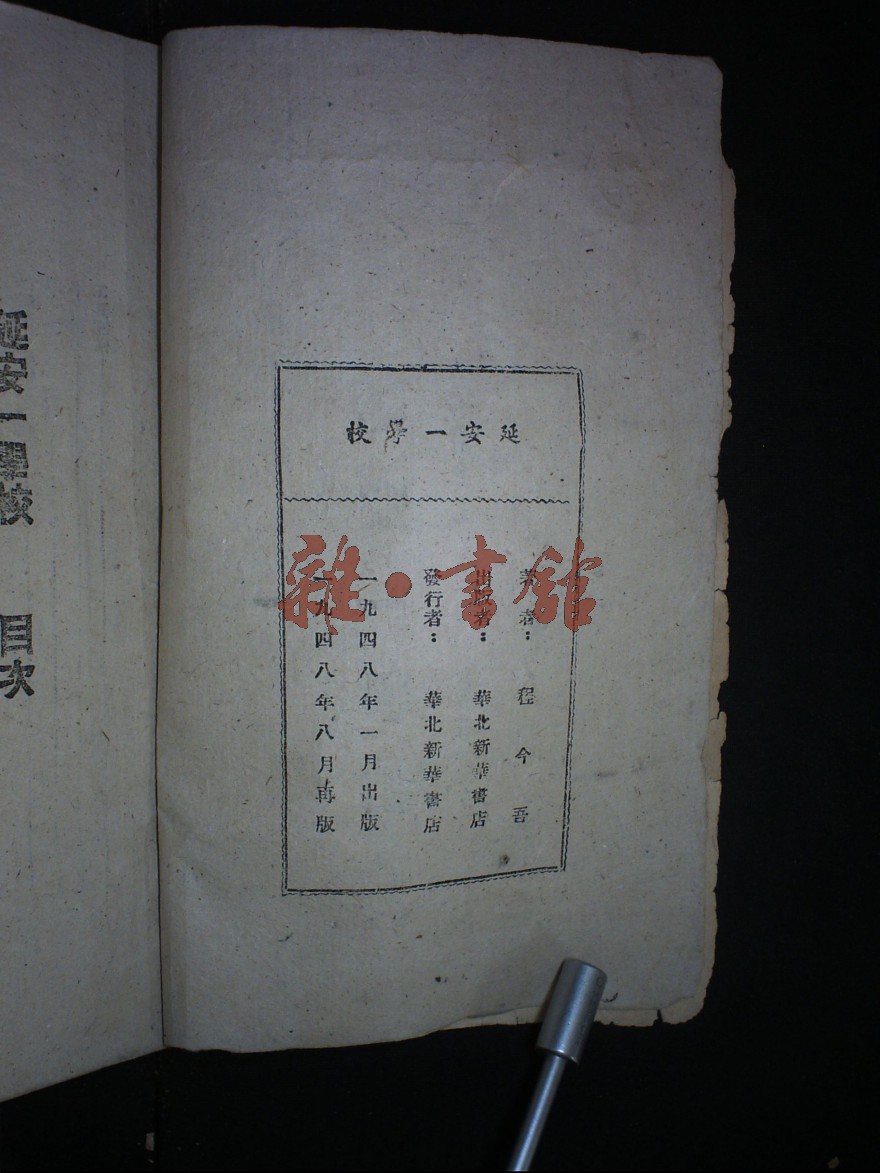 延安一學校
著者：程今吾
出版者：華北新華書店
發行者：華北新華書店
一九四八年一月出版
一九四八年八月再版
延安一學校 目次
雜·書館